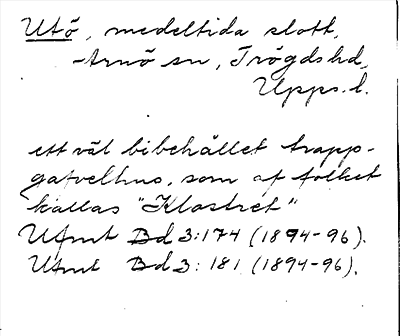 Utö, medeltida slott,
Arnö sn, Trögds hd,
Upps. l.
ett väl bibehållet trapp-
gafvelhus, som af folket
kallas "Klostret"
Ufmt Bd 3:174 (1894-96).
Ufmt Bd 3:181 (1894-96).